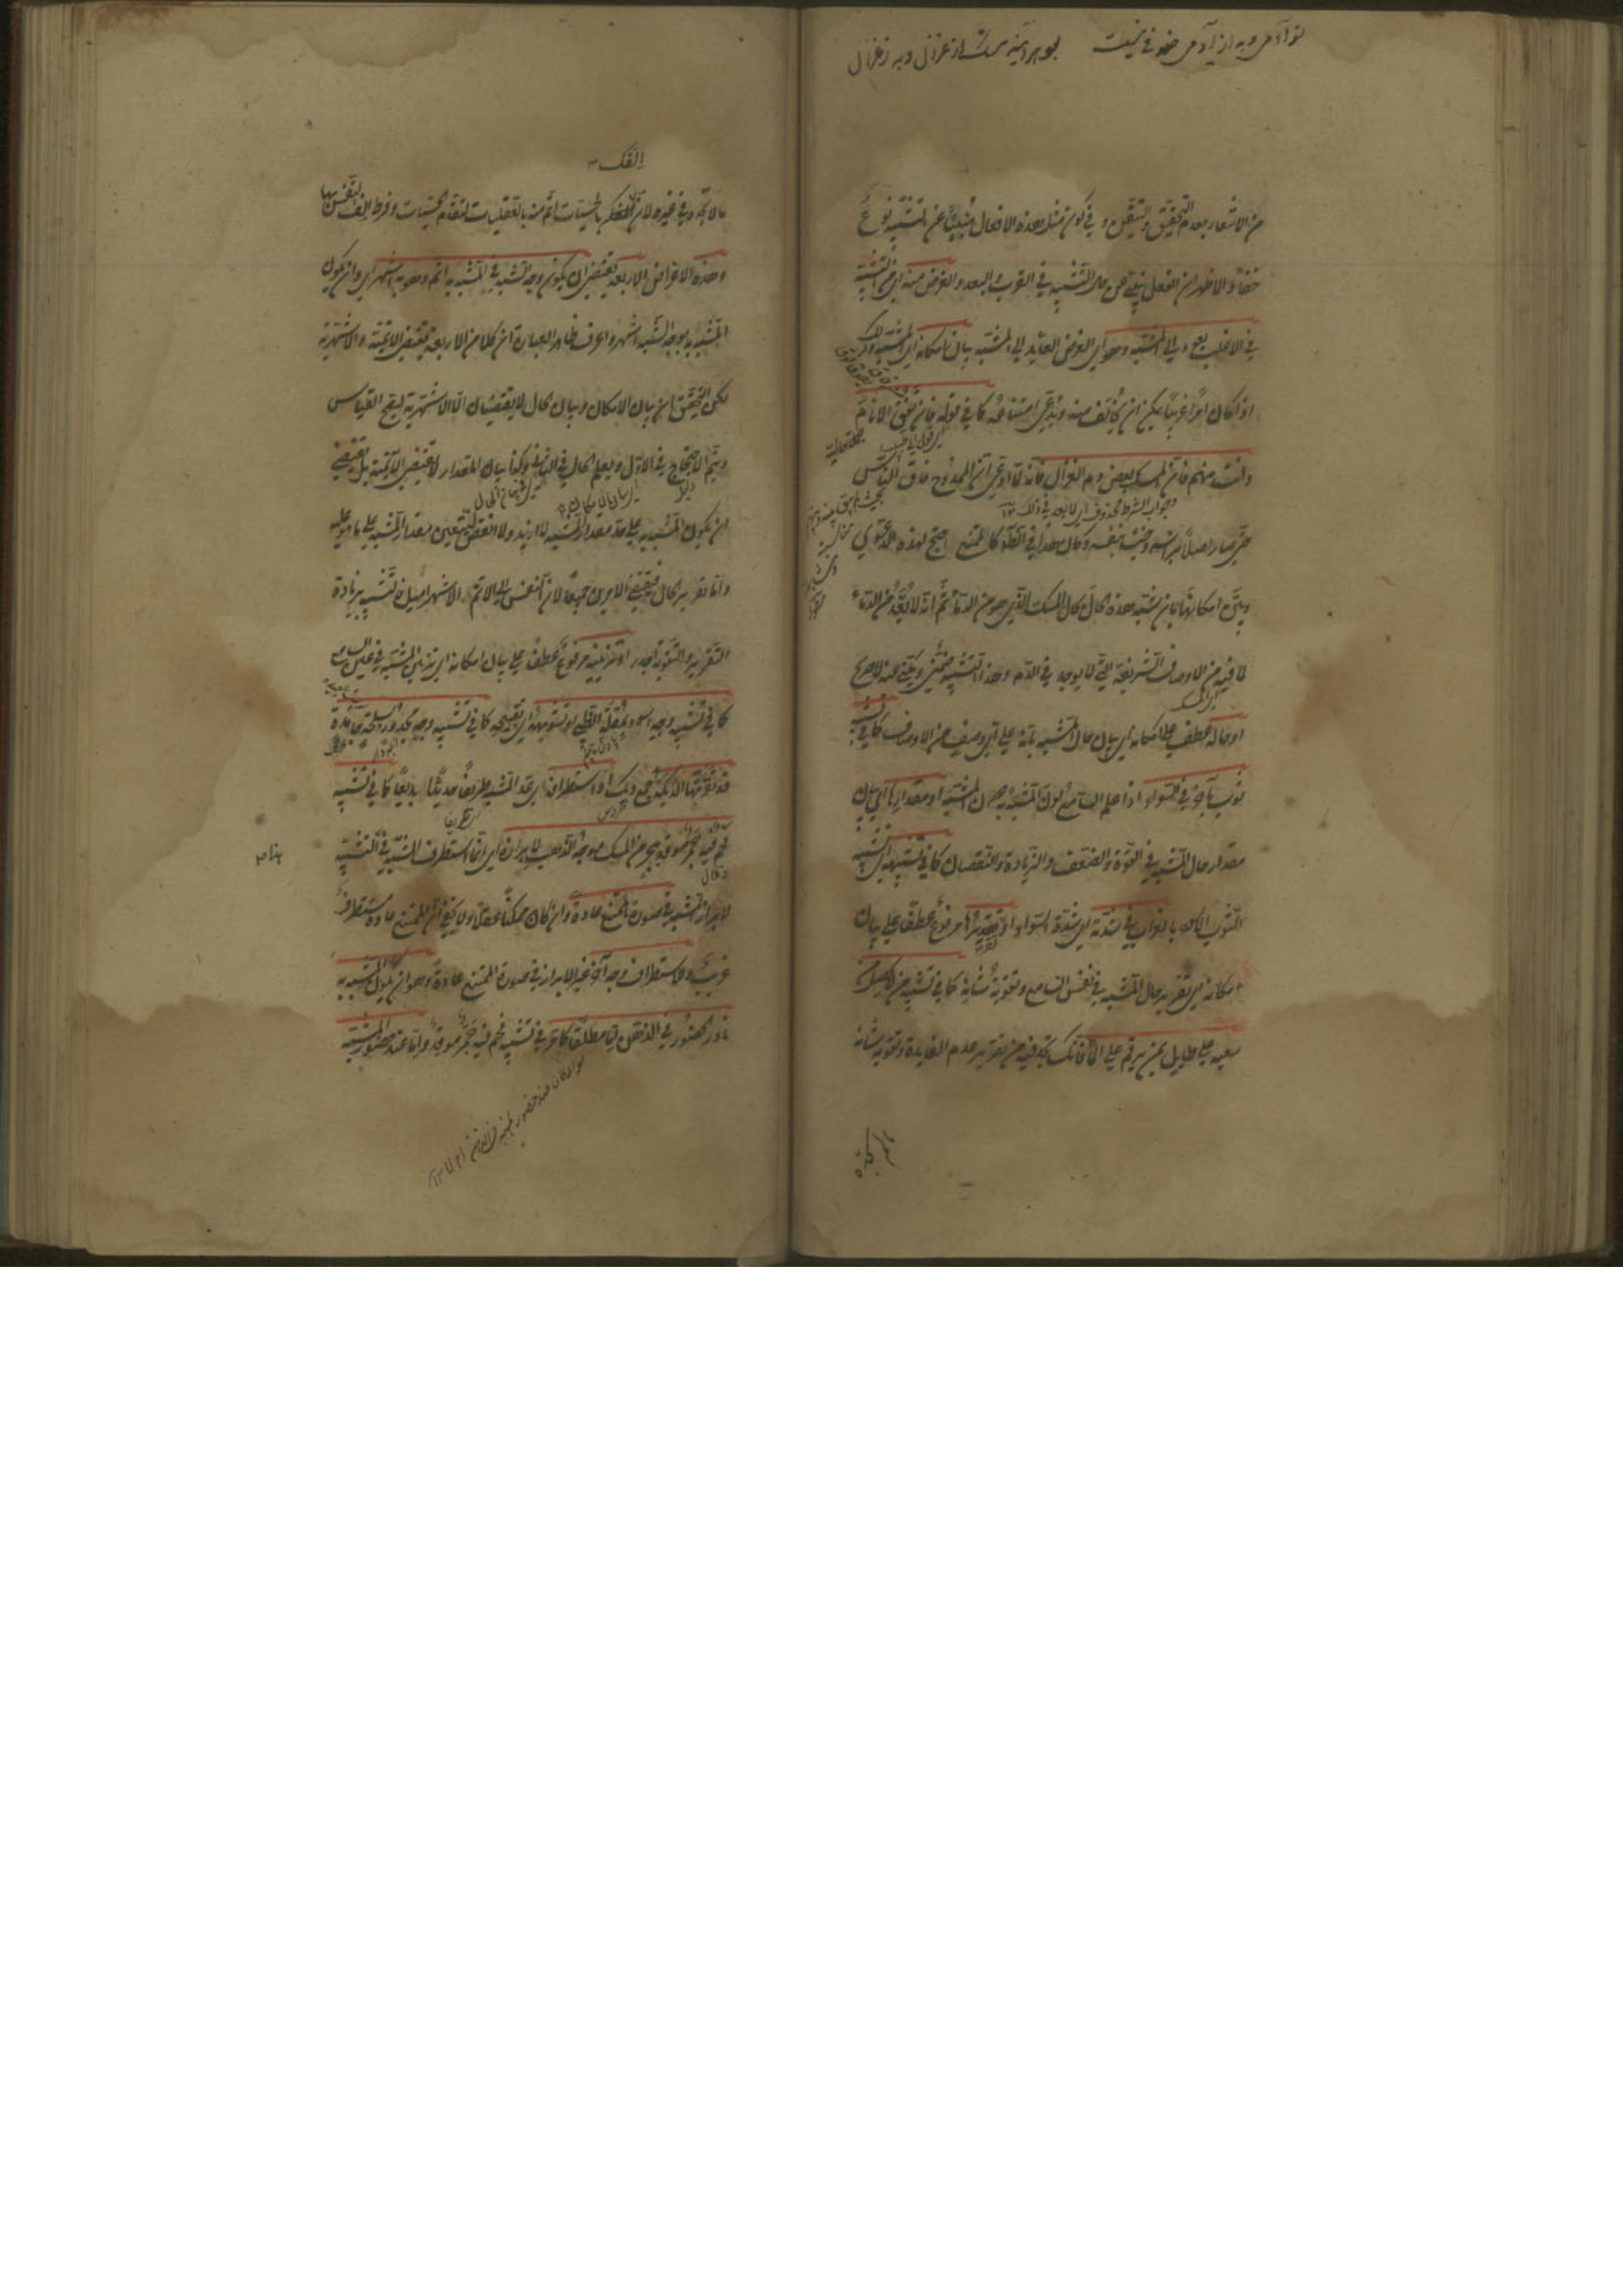 من الاشعار بعدم التحقيق والتيقن وفي كون مثل هذه الافعال منبئا عن التشبيه نوع
خفاء والاظهر ان الفعل ينبئ عن حال التشبيه في القرب والبعد والغرض منه اي من التشبيه
في الاغلب يعود الى المشبه وهو اي الغرض العائد الى المشبه بيان امكانه اي المشبه وذلك
اذا كان امرا غريبا يمكن ان يخالف فيه ويدعى امتناعه كما في قوله فان تفق الانام
وانت منهم فان المسك بعض دم الغزال فانه لما ادعى ان الممدوح فاق الناس
حتى صار اصلا برأسه وجنسا بنفسه وكان هذا في الظاهر كالممتنع احتج لهذه الدعوى
وبين امكانها بان شبه هذه الحال بحال المسك الذي هو من الدماء ثم انه لا يعد من الدماء
لما فيه من الاوصاف الشريفة التي لا يوجد في الدم وهذا التشبيه ضمني ومكنى عنه لا صريح
او حاله عطف على امكانه اي بيان حال المشبه بانه على اي وصف من الاوصاف كما في تشبيه
ثوب بآخر في السواد اذا علم السامع لون المشبه به دون المشبه او مقدارها اي بيان
مقدار حال المشبه في القوة والضعف والزيادة والنقصان كما في تشبيهه اي تشبيه
الثوب الاسود بالغراب في شدته اي شدة السواد او تقريرها مرفوع عطف على بيان
امكانه اي تقرير حال المشبه في نفس السامع وتقوية شأنه كما في تشبيه من لا يحصل من
سعيه على طائل بمن يرقم على الماء فانك تجد فيه من تقرير عدم الفائدة وتقوية شأنه
ما لا تجده في غيره لان الفكر بالحسيات اتم منه بالعقليات لتقدم الحسيات وفرط الف النفس بها
وهذه الاغراض الاربعة تقتضي ان يكون وجه الشبه في المشبه به اتم وهو به اشهر اي وان يكون
المشبه به بوجه الشبه اشهر واعرف ظاهر العبارة ان كلا من الاربعة يقتضي الاتمية والاشهرية
لكن التحقيق ان بيان الامكان وبيان الحال لا يقتضيان الا الاشهرية ليصح القياس
ويتم الاحتجاج في الاول ويعلم الحال في الثاني وكذا بيان المقدار لا يقتضي الاتمية بل يقتضي
ان يكون المشبه به على حد مقدار المشبه لا ازيد ولا انقص ليتعين مقدار المشبه على ما هو عليه
واما تقرير الحال فيقتضي الامرين جميعا لان النفس الى الاتم الاشهر اميل فالتشبيه به بزيادة
التقرير والتقوية اجدر او تزيينه مرفوع عطف على بيان امكانه اي تزيين المشبه في عين السامع
كما في تشبيه وجه اسود بمقلة الظبي او تشويهه اي تقبيحه كما في تشبيه وجه مجدور بسلحة جامدة
قد نقرتها الديكة جمع ديك او استطرافه اي عد المشبه طريفا حديثا بديعا كما في تشبيه
فحم فيه جمر موقد ببحر من المسك موجه الذهب لابرازه اي انما استطرف المشبه في التشبيه
لابراز المشبه في صورة الممتنع عادة وان كان ممكنا عقلا ولا يخفى ان الممتنع عادة مستطرف
غريب وللاستطراف وجه آخر غير الابراز في صورة الممتنع عادة وهو ان يكون المشبه به
نادر الحضور في الذهن اما مطلقا كما مر في تشبيه فحم فيه جمر موقد واما عند حضور المشبه